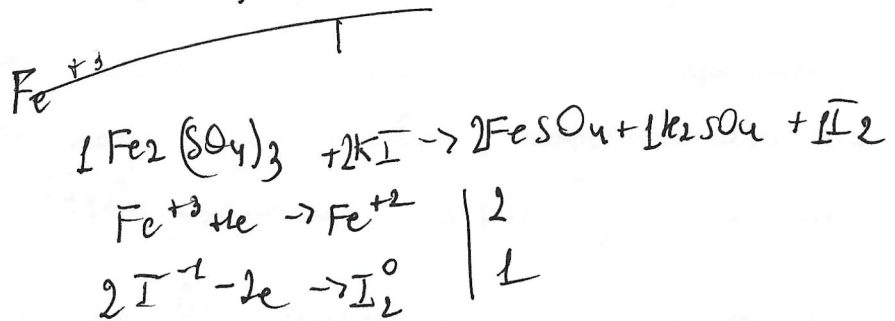 Fe⁺³
1Fe₂(SO₄)₃ + 2KI -> 2FeSO₄ + 1K₂SO₄ + 1I₂
Fe⁺³ + 1e -> Fe⁺² | 2
2I⁻¹ - 2e -> I₂⁰ | 1